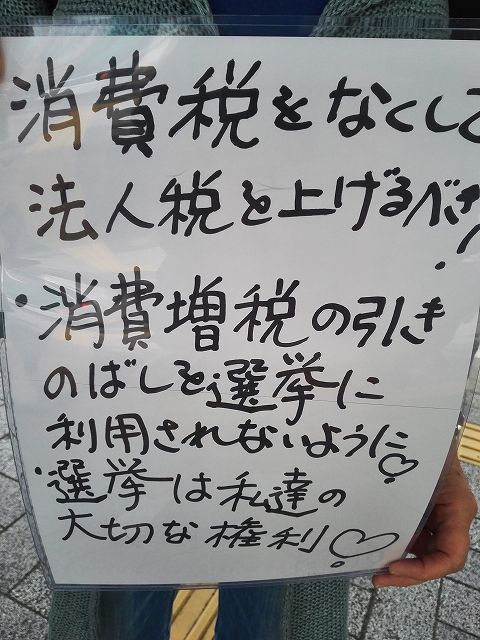 消費税をなくして
法人税を上げるべき!
・消費増税の引き
のばしを選挙に
利用されないように♡
・選挙は私達の
大切な権利♡